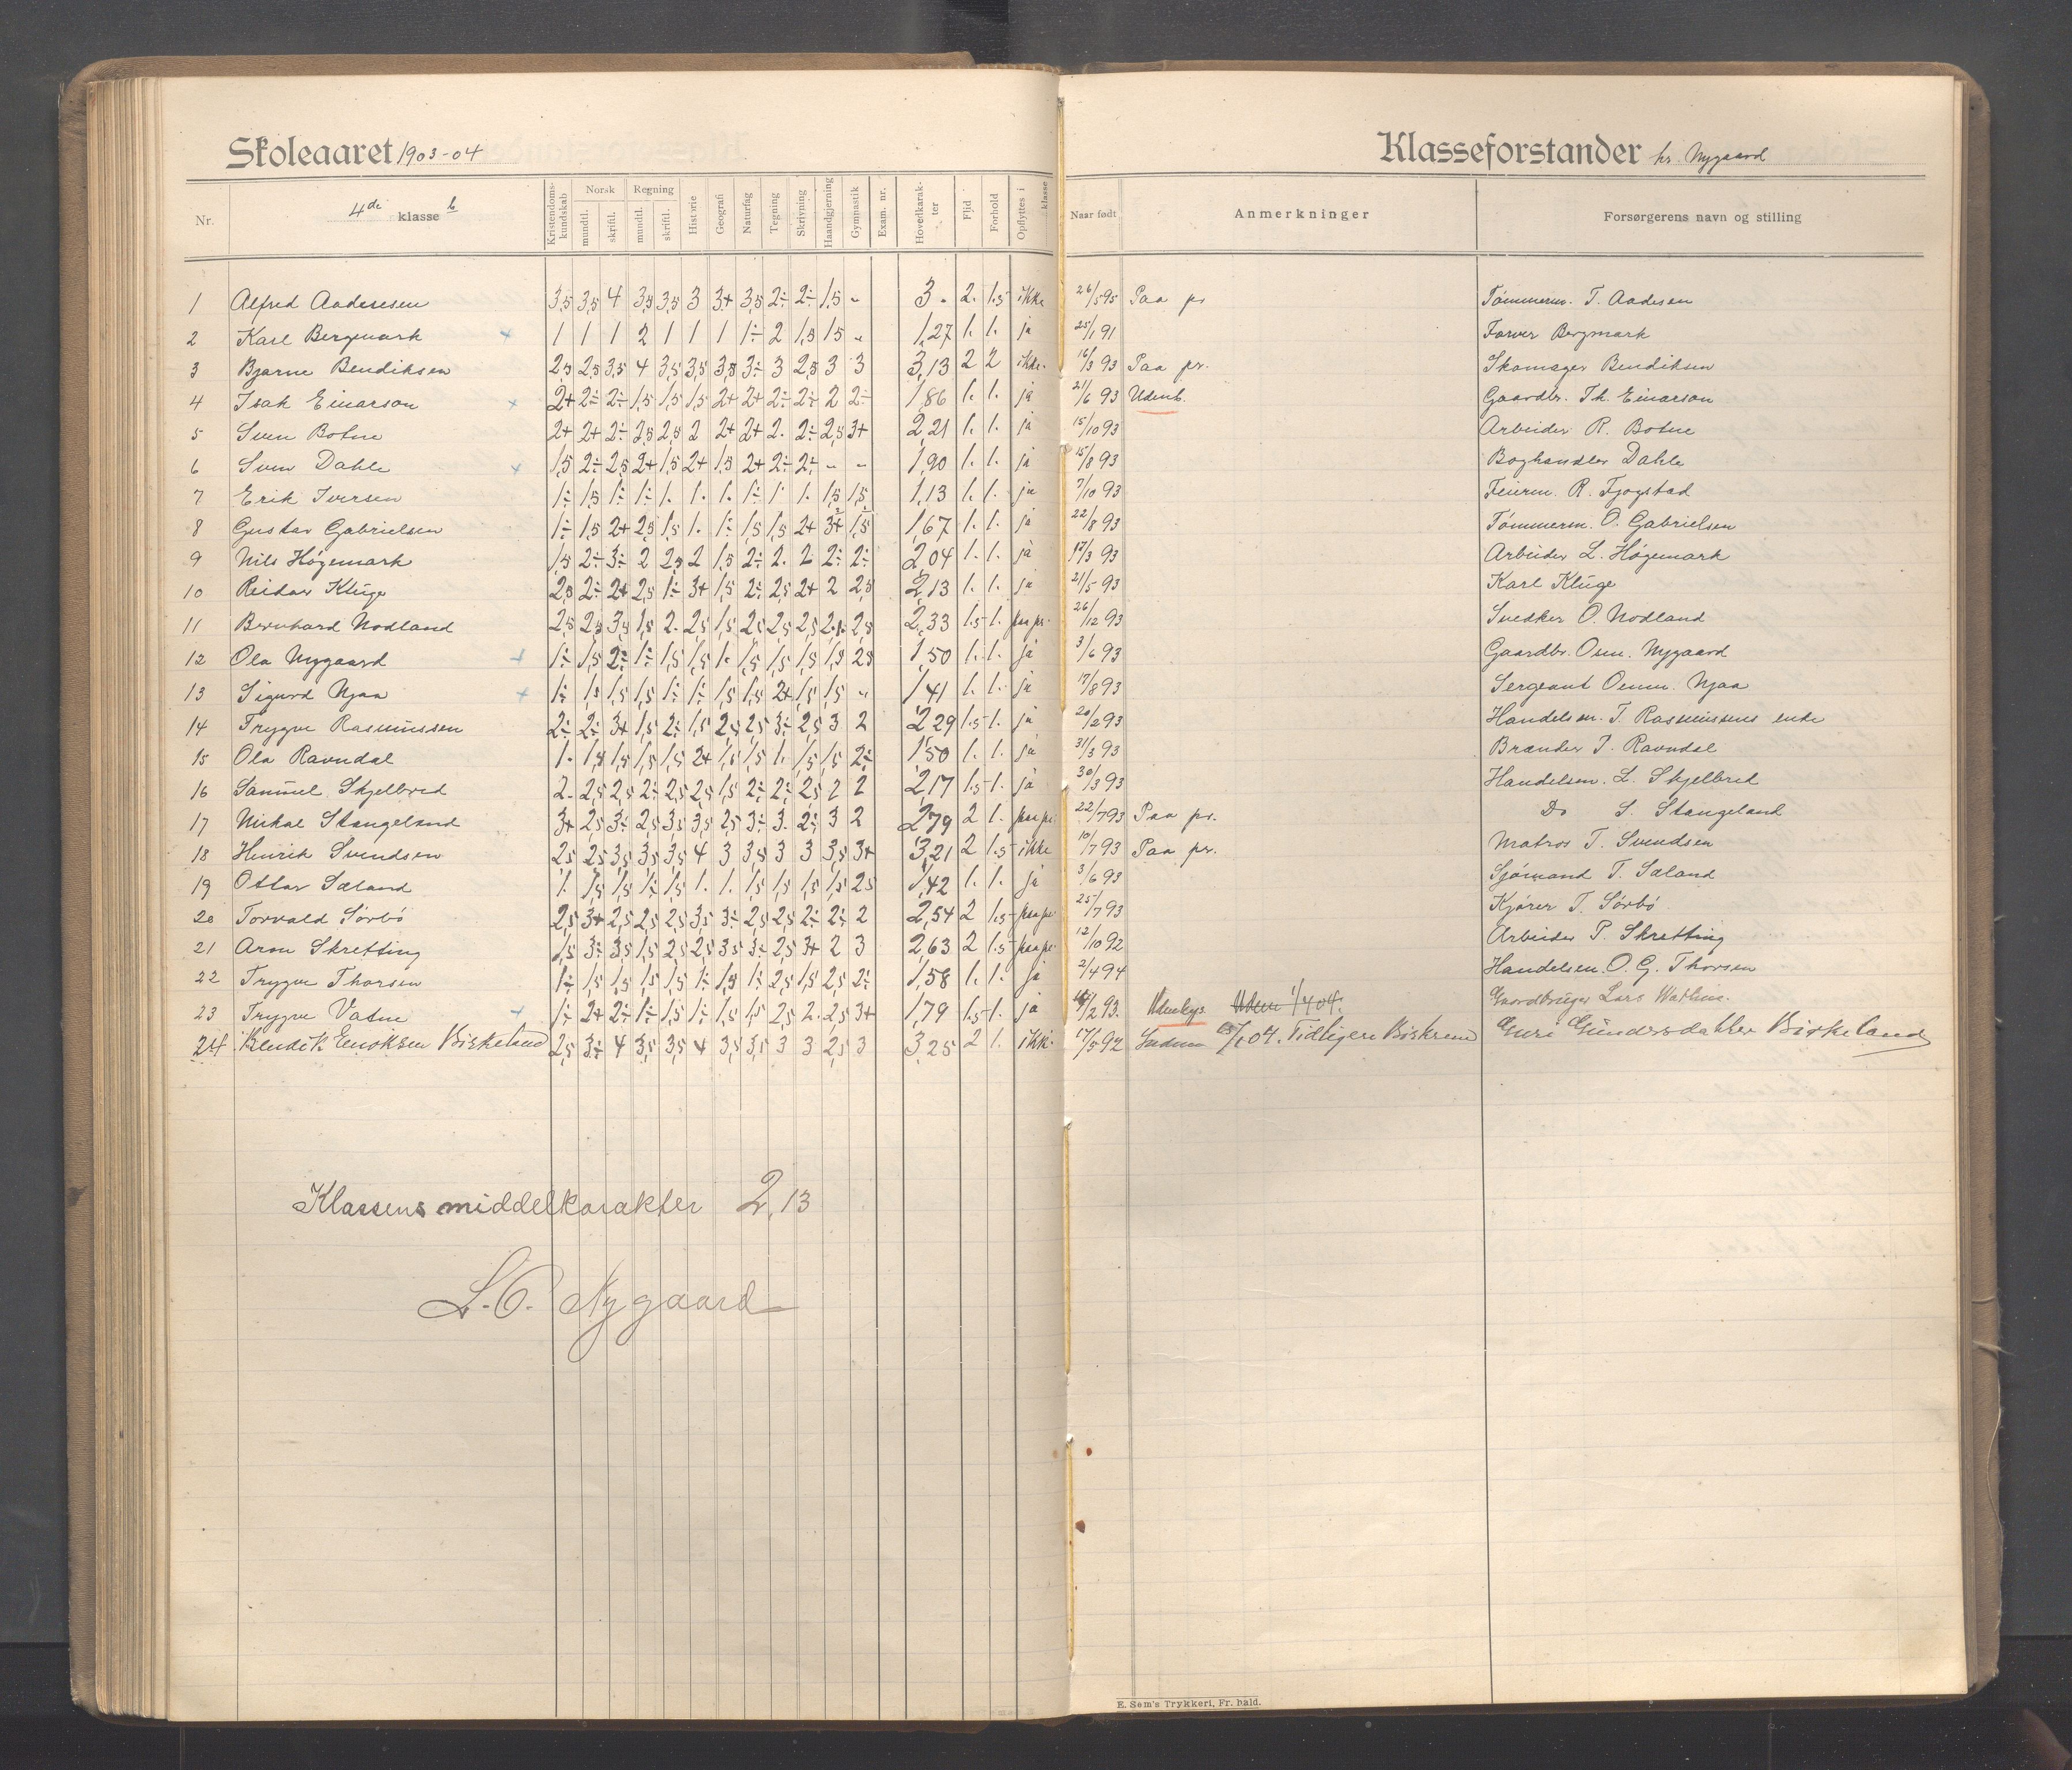 Skoleaaret 1903-04
Klasseforstander hr. Nygaard
Nr. 4de klasse b Kristendomskundskab Norsk mundtl. skriftl. Regning mundtl. skriftl. Historie Geografi Naturfag Tegning Skrivning Haandgjerning Gymnastik Exam. nr. Hovedkarakter Flid Forhold Opflyttes i klasse Naar født Anmerkninger Forsørgerens navn og stilling
1 Alfred Aadnesen 3,5 3,5 4 3,5 3,5 3 3+ 3,5 2÷ 2÷ 1,5 - 3. 2. 1.5 ikke 26/5 95 Paa pr Tømmerm. T. Aadnesen
2 Karl Bergmark + 1 1 1 2 1 1 1 1÷ 2 1,5 1,5 - 1,27 1. 1. ja 25/1 91 Farver Bergmark
3 Bjarne Bendiksen 2,5 2,5 3,5 4 3,5 3,5 3,5 3÷ 3 2,5 3 3 3,13 2 2 ikke. 16/3 93 Paa pr. Skomager Bendiksen
4 Isak Einarson + 2+ 2÷ 2÷ 1,5 1,5 1,5 2+ 2+ 2÷ 2÷ 2 2÷ 1,86 1. 1. ja 21/6 93 Udenb. Gaardbr. Th. Einarson
5 Sven Botne 2+ 2+ 2÷ 2,5 2,5 2 2+ 2+ 2. 2÷ 2,5 3+ 2,21 1. 1. ja 15/10 93 Arbeider R. Botne
6 Sven Dahle + 1,5 2÷ 2,5 2+ 1,5 2+ 1,5 2+ 2÷ 2÷ - - 1,90 1. 1. ja 15/8 93 Boghandler Dahle
7 Erik Iversen 1÷ 1,5 1÷ 1÷ 1. 1. 1. 1÷ 1 1. 1,5 1,5 1,13 1. 1. ja 7/10 93 Feierm. R. Fjogstad
8 Gustav Gabrielsen 1÷ 1,5 2+ 2,5 1,5 1. 1÷ 1,5 1,5 2+ 3+ 1,5 1,67 1. 1. ja 22/8 93 Tømmerm. O. Gabrielsen
9 Nils Høgemark 1,5 2÷ 3÷ 2 2,5 2 1,5 2÷ 2. 2 2÷ 2÷ 2,04 1. 1. ja 17/3 93 Arbeider L. Høgemark
10 Reidar Kluge 2,5 2÷ 2+ 2,5 1÷ 3+ 1,5 2÷ 2,5 2+ 2 2,5 2,13 1. 1. ja 21/5 93 Karl Kluge
11 Bernhard Nodland 2,5 2,5 3,5 1,5 2. 2,5 1,5 2,5 2,5 2,5 2,5 2,33 1.5 1. paa pr. 26/12 93 Snedker O. Nodland
12 Ola Nygaard + 1÷ 1,5 2÷ 1÷ 1,5 1,5 1. 1,5 1,5 1,5 1,5 2,5 1,50 1. 1. ja 3/6 93 Gaardbr. Osm. Nygaard
13 Sigurd Njaa + 1÷ 1,5 1,5 1,5 1÷ 1÷ 1,5 1,5 2+ 1,5 1,5 - 1,41 1. 1. ja 17/8 93 Sergeant Osmn. Njaa
14 Trygve Rasmussen 2÷ 2÷ 3+ 1,5 2÷ 1,5 2,5 2,5 3÷ 2,5 3 2 2,29 1.5 1. ja 20/2 93 Handelsm. T. Rasmussens enke
15 Ola Ravndal 1. 1,5 1,5 1,5 1,5 2+ 1,5 1,5 1. 1,5 1,5 2÷ 1,50 1. 1. ja 31/3 93 Brænder T. Ravndal
16 Samuel Skjelbred 2. 2,5 2,5 2÷ 2,5 2,5 1,5 2÷ 2÷ 2,5 2 2 2,17 1.5 1. ja 30/3 93 Handelsm. L. Skjelbred
17 Mikal Stangeland 3+ 2,5 3÷ 2,5 3,5 3,5 2,5 3÷ 3. 2÷ 3 2 2,79 2 1. paa pr. 22/7 93 Paa pr. Do S. Stangeland
18 Henrik Svendsen 2,5 2,5 3,5 3,5 3,5 4 3 3,5 3 3 3,5 3+ 3,21 2 1.5 ikke 10/7 93 Paa pr. Matros T. Svendsen
19 Ottar Sæland 1. 1,5 1,5 1÷ 1,5 1. 1. 1,5 1,5 1,5 1,5 2,5 1,42 1. 1. ja 3/6 93 Sjømand T. Sæland
20 Torvald Sørbö 2,5 3+ 2,5 2,5 2,5 3,5 3÷ 2,5 2,5 2÷ 2÷ 2 2,54 2 1.5 paa pr. 25/7 93 Kjører T. Sørbö
21 Aron Skretting 1,5 3÷ 3,5 1,5 2,5 2,5 3,5 3÷ 2,5 3+ 2 3 2,63 2 1.5 paa pr. 12/10 92 Arbeider P. Skretting
22 Trygve Thorsen 1÷ 1,5 1,5 1,5 1,5 1÷ 1,5 1÷ 2,5 1,5 2,5 2÷ 1,58 1. 1. ja 2/4 94 Handelsm. O. G. Thorsen
23 Trygve Vatne + 1÷ 2+ 2÷ 1÷ 1,5 1÷ 1,5 1,5 2,5 2. 2,5 3+ 1,79 1.5 1. ja /2 93. Udenbys. Uden 1/4 04. Gaardbruger Lars Wathne.
24 Bendik Enoksen Birkeland 2,5 3÷ 4 3,5 3,5 4 3,5 3,5 3 3 2,5 3 3,25 2 1. ikke 17/5 92 /1 04. Tidligere Guri Gundersdatter Birkeland
Klassens middelkarakter 2,13
L. O. Nygaard
E. Sem's Trykkeri, Fr.hald.